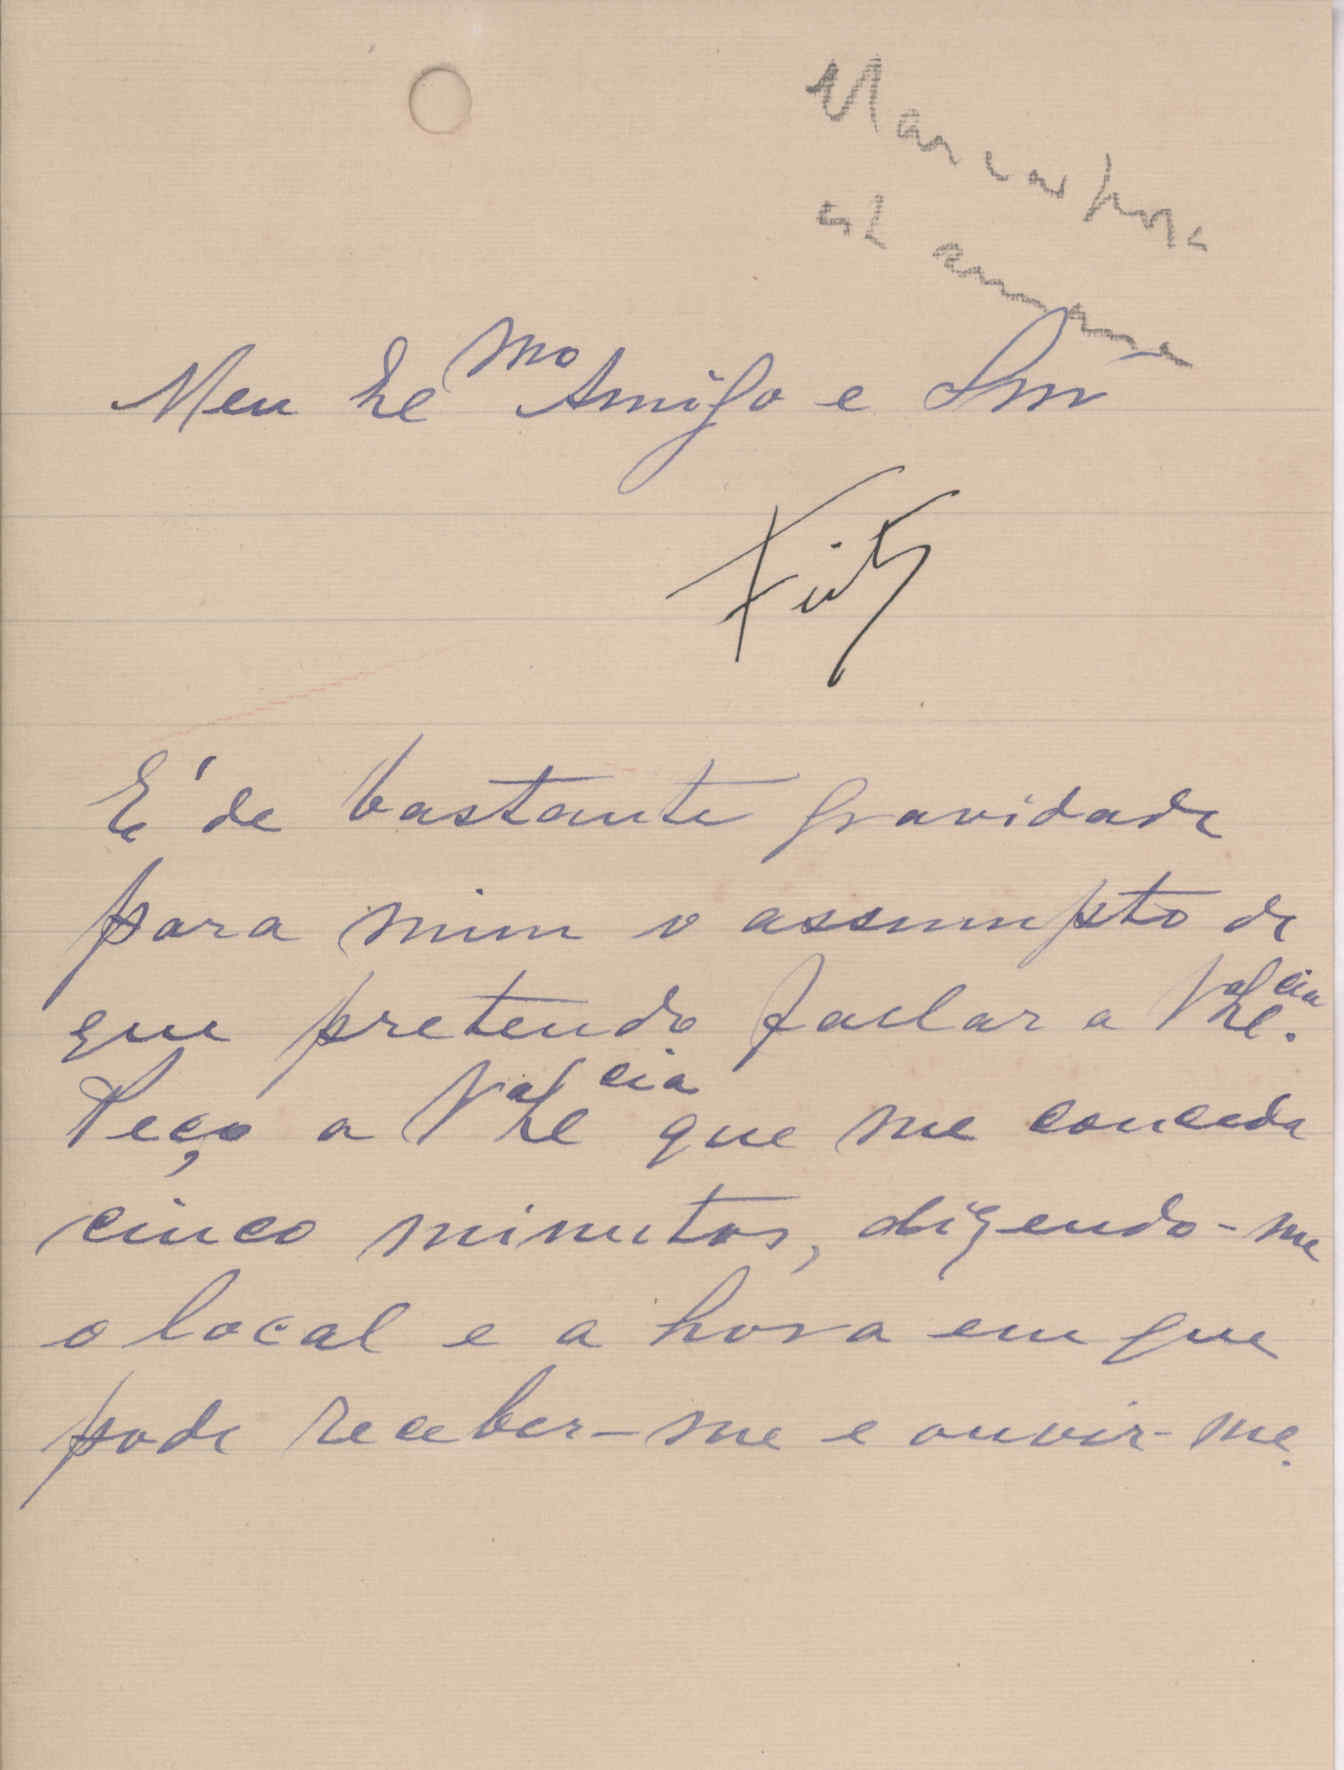 Marcar hora
Meu Exmo Amigo e Snr
Feito
E' de bastante gravidade
para mim o assumpto de
que pretendo fallar a V. Excia.
Peço a V. Excia que me conceda
cinco minutos, dizendo-me
o local e a hora em que
pode receber-me e ouvir-me.